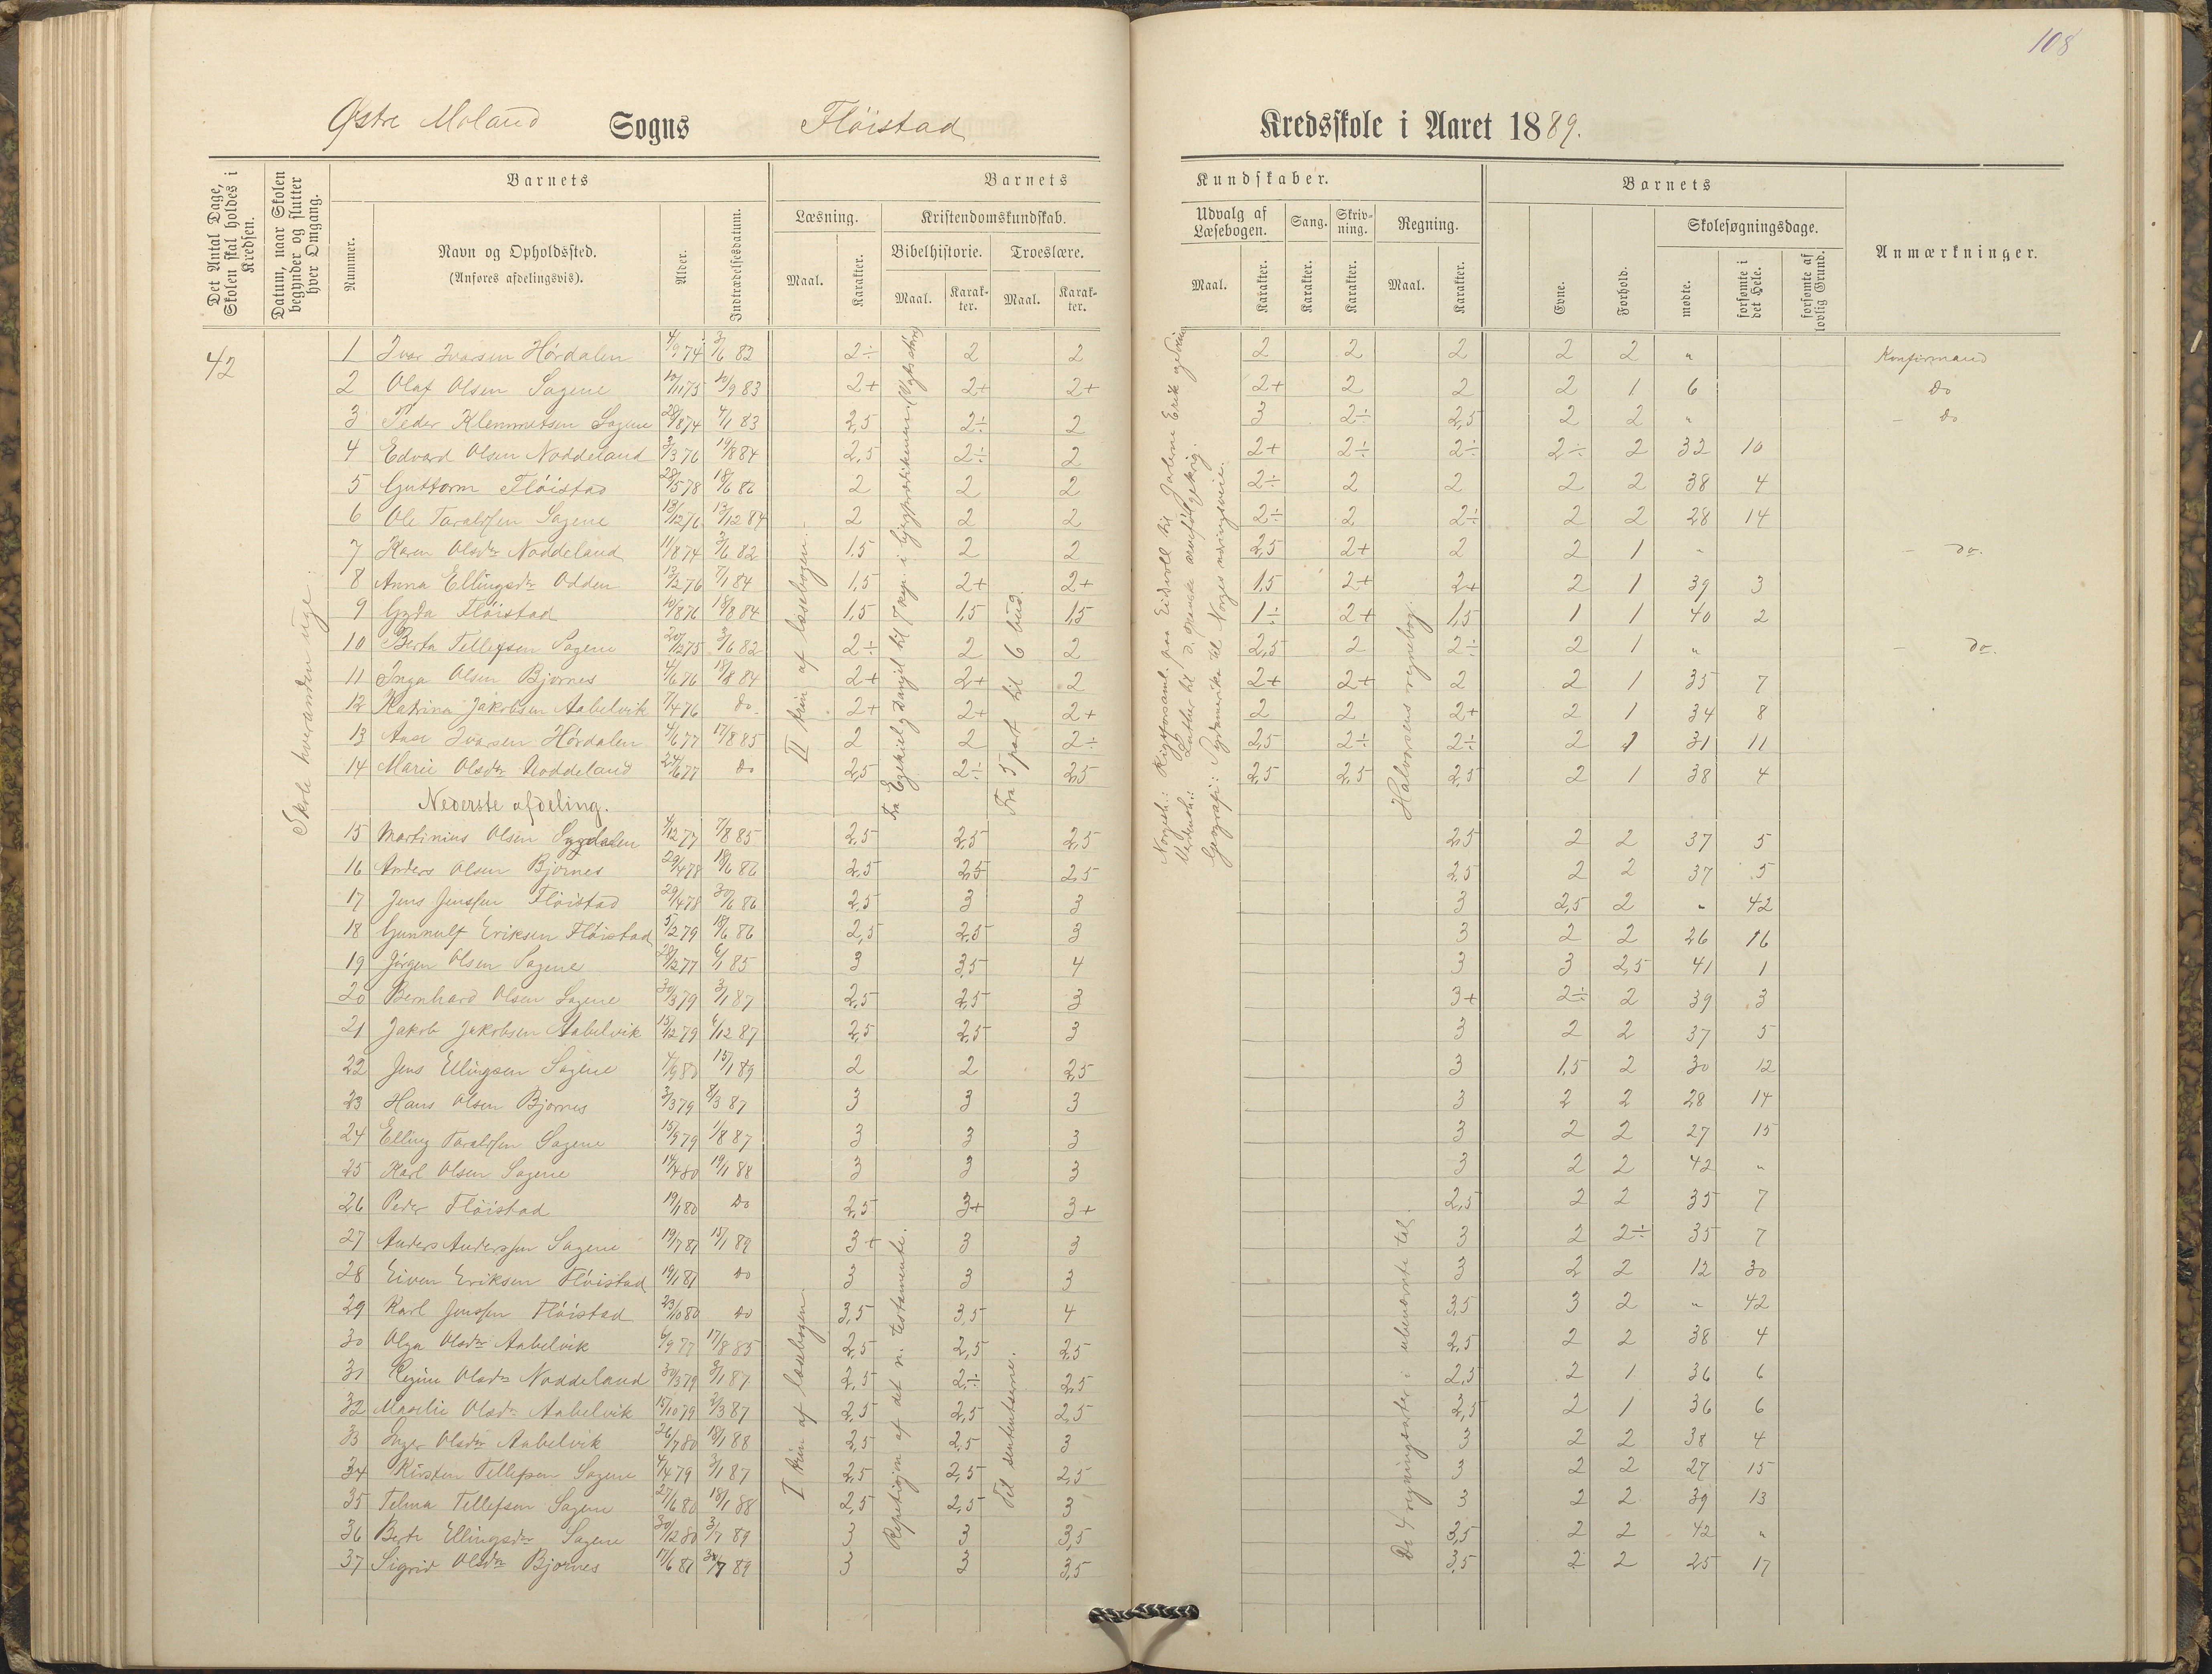 108
Østre Moland Sogns Fløistad Kredsskole i Aaret 1889.
Det Antal Dage, Skolen skal holdes i Kredsen.
Datum, naar Skolen begynder og slutter hver Omgang.
Barnets
Nummer.
Navn og Opholdssted.
(Anføres afdelingsvis).
Alder.
Indtrædelsesdatum.
Barnets Kundskaber.
Læsning.
Maal.
Karakter.
Kristendomskundskab.
Bibelhistorie.
Maal.
Karakter.
Troeslære.
Maal.
Karakter.
Udvalg af Læsebogen.
Maal.
Karakter.
Sang.
Karakter.
Skrivning.
Karakter.
Regning.
Maal.
Karakter.
Barnets
Evne.
Forhold.
Skolesøgningsdage.
mødte.
forsømte i det Hele.
forsømte af lovlig Grund.
Anmærkninger.
42
Skole hveranden uge.
II trin af læsebogen.
Fra 5 part til 6 bud.
Halvorsens regnebog.
1 Ivar Ivarsen Hørdalen 4/9 74 3/6 82 2÷ 2 2 2 2 2 2 2 " Konfirmand
2 Olaf Olsen Sagene 10/11 75 10/9 83 2+ 2+ 2+ 2+ 2 2 2 1 6 Do
3 Peder Klemmetsen Sagene 28/8 74 4/1 83 2,5 2÷ 2 3 2÷ 2,5 2 2 " Do
4 Edvard Olsen Noddeland 3/3 76 19/8 84 2,5 2÷ 2 2+ 2÷ 2÷ 2÷ 2 32 10
5 Guttorm Fløistad 28/5 78 18/6 86 2 2 2 2÷ 2 2 2 2 38 4
6 Ole Taraldsen Sagene 13/12 76 13/12 84 2 2 2 2÷ 2 2÷ 2 2 28 14
7 Karen Olsdtr Noddeland 11/8 74 3/6 82 1,5 2 2 2,5 2+ 2 2 1 " do.
8 Anna Ellingsdtr Odden 13/2 76 7/1 84 1,5 2+ 2+ 1,5 2+ 2+ 2 1 39 3
9 Gyda Fløistad 10/8 76 18/8 84 1,5 1,5 1,5 1÷ 2+ 1,5 1 1 40 2
10 Berta Tellefsen Sagene 20/12 75 3/6 82 2÷ 2 2 2,5 2 2÷ 2 1 " do.
11 Inga Olsen Bjornes 4/6 76 18/8 84 2+ 2+ 2 2+ 2+ 2 2 1 35 7
12 Katrina Jakobsen Aabelvik 7/4 76 do. 2+ 2+ 2+ 2 2 2+ 2 1 34 8
13 Aase Ivarsen Hørdalen 4/6 77 17/8 85 2 2 2÷ 2,5 2÷ 2÷ 2 1 31 11
14 Marie Olsdtr Noddeland 24/6 77 do 2,5 2÷ 2,5 2,5 2,5 2,5 2 1 38 4
Nederste afdeling.
15 Martinius Olsen 4/12 77 7/8 85 2,5 2,5 2,5 2,5 2 2 37 5
16 Anders Olsen Bjornes 29/4 78 18/6 86 2,5 2,5 2,5 2,5 2 2 37 5
17 Jens Jenssen Fløistad 29/4 78 30/6 86 2,5 3 3 3 2,5 2 " 42
18 Gunnulf Eriksen Fløistad 5/2 79 18/6 86 2,5 2,5 3 3 2 2 26 16
19 Jørgen Olsen Sagene 28/12 77 6/1 85 3 3,5 4 3 3 2,5 41 1
20 Bernhard Olsen Sagene 30/3 79 3/1 87 2,5 2,5 3 3+ 2÷ 2 39 3
21 Jakob Jakobsen Aabelvik 15/12 79 6/12 87 2,5 2,5 3 3 2 2 37 5
22 Jens Ellingsen Sagene 4/9 80 15/1 89 2 2 2,5 3 1,5 2 30 12
23 Hans Olsen Bjornes 3/3 79 8/3 87 3 3 3 3 2 2 28 14
24 Elling Taraldsen Sagene 15/9 79 1/8 87 3 3 3 3 2 2 27 15
25 Karl Olsen Sagene 14/4 80 19/1 88 3 3 3 3 2 2 42 "
26 Peder Fløistad 19/1 80 Do 2,5 3+ 3+ 2,5 2 2 35 7
27 Anders Anderssen Sagene 19/7 81 15/1 89 3+ 3 3 3 2 2÷ 35 7
28 Eiven Eriksen Fløistad 19/1 81 Do 3 3 3 3 2 2 12 30
29 Karl Jenssen Fløistad 23/10 80 Do 3,5 3,5 4 3,5 3 2 " 42
30 Olga Olsdtr Aabelvik 6/9 77 17/8 85 2,5 2,5 2,5 2,5 2 2 38 4
31 Regine Olsdtr Noddeland 30/3 79 3/1 87 2,5 2÷ 2,5 2,5 2 1 36 6
32 Maselie Olsdtr Aabelvik 15/10 79 3/3 87 2,5 2,5 2,5 2,5 2 1 36 6
33 Inger Olsdtr Aabelvik 26/7 80 18/1 88 2,5 2,5 3 3 2 2 38 4
34 Kirsten Tellefsen Sagene 4/4 79 3/1 87 2,5 2,5 2,5 3 2 2 27 15
35 Telma Tellefsen Sagene 27/6 80 18/1 88 2,5 2,5 3 3 2 2 39 13
36 Berte Ellingsdtr Sagene 30/12 80 3/7 89 3 3 3,5 3,5 2 2 42 "
37 Sigrid Olsdtr Bjornes 17/6 81 3 3 3,5 3,5 2 2 25 17
I trin af læsebogen.
Repetisjon af det n. testamente.
Til sententserne.
De 4 regningsarter i ubenævnte tal.
Geografi: Sydamerika til Norges næringsveie.